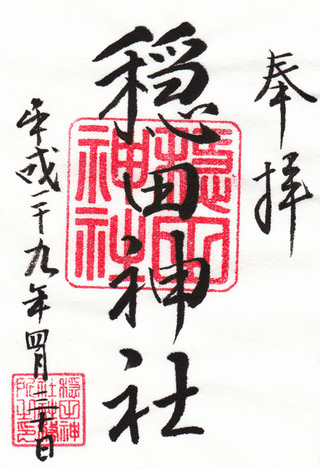 奉拝
穏田神社
平成二十九年四月三十日
穏田神社
穏田神社社務所之印